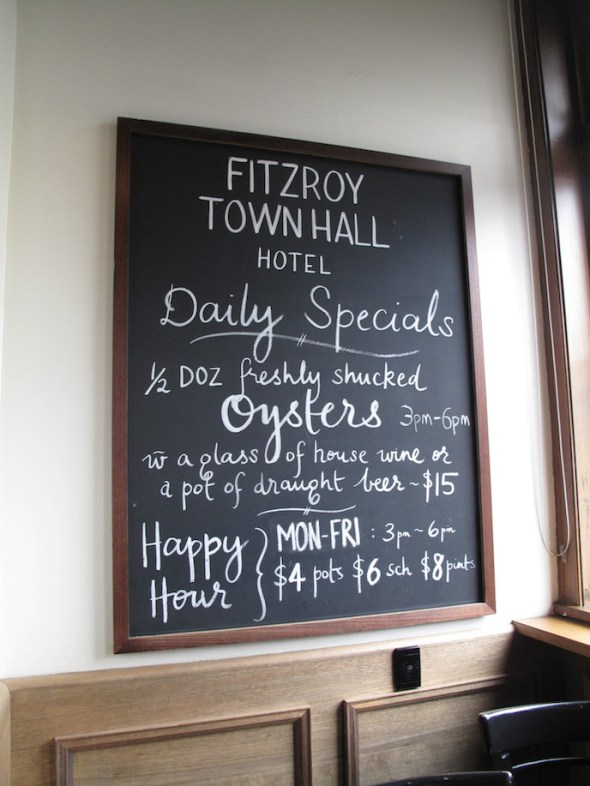 FITZROY
TOWN HALL
HOTEL
Daily Specials
1/2 DOZ freshly shucked
Oysters 3pm-6pm
w̄ a glass of house wine or
a pot of draught beer ~ $15
Happy Hour } MON-FRI : 3pm ~ 6pm
$4 pots $6 sch $8 pints